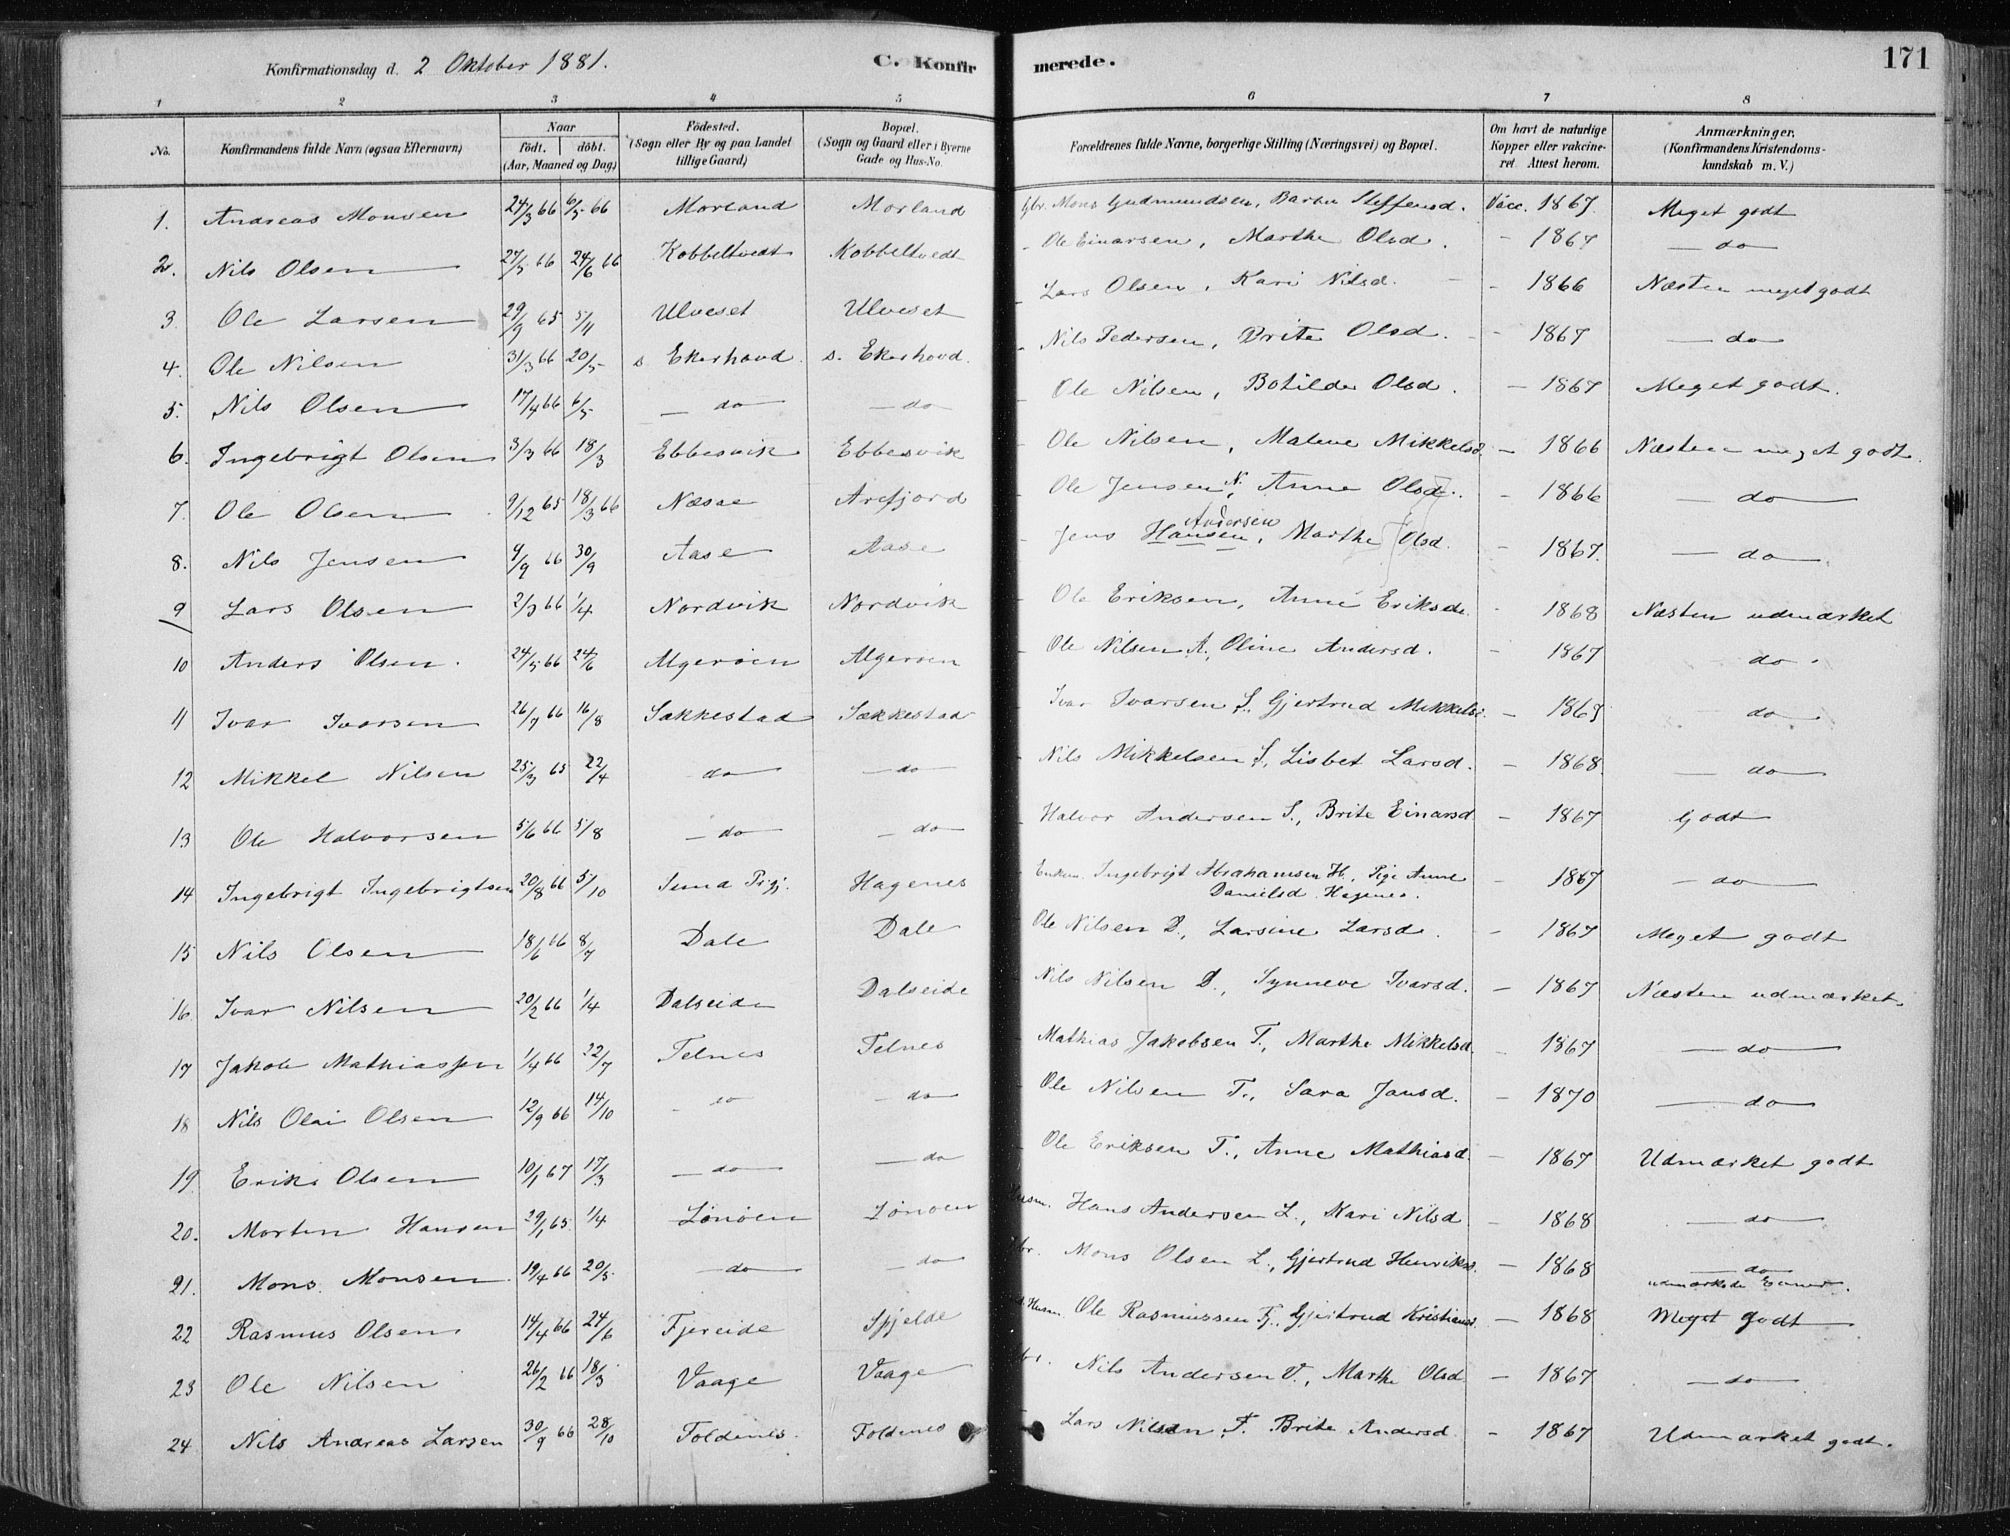 Konfirmationsdag d. 2 Oktober 1881. C. Konfirmerede. 171
1 2 3 4 5 6 7 8
No. Konfirmandens fulde Navn (ogsaa Efternavn) Naar födt. döbt. (Aar, Maaned og Dag) Födested. (Sogn eller By og paa Landet tillige Gaard) Bopæl. (Sogn og Gaard eller i Byerne Gade og Hus-No. Forældrenes fulde Navne, borgerlige Stilling (Næringsvei) og Bopæl. Om havt de naturlige Kopper eller vakcineret. Attest herom. Anmærkninger. (Konfirmandens Kristendomskundskab m. V.)
1. Andreas Monsen 24/3 66 6/5 66 Morland Morland Gbr. Mons Gudmundsen, Barbu Steffensd. Vacc. 1867. Meget godt
2. Nils Olsen 27/5 66 24/6 66 Kobbeltvedt Kobbeltvedt - Ole Einarsen, Marthe Olsd. - 1867 - do -
3. Ole Larsen 29/9 65 5/11 Ulveset Ulveset - Lars Olsen, Kari Nilsd. - 1866 Næsten meget godt
4. Ole Nilsen 31/3 66 20/5 s. Ekerhovd s. Ekerhovd. - Nils Pedersen, Brite Olsd. - 1867 - do -
5. Nils Olsen 17/4 66 6/5 - do - - do - - Ole Nilsen, Botilde Olsd. - 1867 Meget godt.
6. Ingebrigt Olsen 3/3 66 18/3 Ebbesvik Ebbesvik - Ole Nilsen, Malene Mikkelsd. - 1866 Næsten meget godt.
7. Ole Olsen 9/12 65 18/3 66 Næsse Arefjord - Ole Jensen N., Anne Olsd. - 1866 - do -
8. Nils Jensen 9/9 66 30/9 Aase Aase - Jens Hansen Andersen, Marthe Olsd. - 1867. - do -
9 Lars Olsen 2/3 66 1/4 Nordvik Nordvik - Ole Eriksen, Anne Eriksd. - 1868 Næsten udmærket
10 Anders Olsen. 24/5 66 24/6 Algeröen Algeröen - Ole Nilsen A., Oline Andersd. - 1867 - do -
11 Ivar Ivarsen 26/7 66 16/8 Sækkestad Sækkestad - Ivar Ivarsen S., Gjertrud Mikkelsd. - do -
12 Mikkel Nilsen 25/3 65 22/4 - do - - do - - Nils Mikkelsen S., Lisbet Larsd. - 1868. - do -
13 Ole Halvorsen 5/6 66 5/8 - do - - do - - Halvor Andersen S., Brite Einarsd. - 1867 Godt
14 Ingebrigt Ingebrigtsen 20/8 66 5/10 Hagenes Ingebrigt Abrahamsen H., Pige Anne Danielsd. Hagenes. - 1867 - do -
15 Nils Olsen 18/6 66 8/7 Dale Dale Ole Nilsen D., Larsine Larsd. - 1867 Meget godt
16 Ivar Nilsen 20/2 66 1/4 Dalseide Dalseide Nils Nilsen D., Synneve Ivarsd. - 1867 Næsten udmærket.
17 Jakob Mathiassen 1/4 66 22/7 Telnes Telnes Mathias Jakobsen T., Marthe Mikkelsd. - 1867 - do -
18 Nils Olai Olsen 12/9 66 14/10 - do - do - Ole Nilsen T., Sara Jansd. - 1870 - do -
19. Erik Olsen 10/1 67 17/3 - do - - do Ole Eriksen T., Anne Mathiasd. - 1867 Udmærket godt
20. Morten Hansen 29/1 65. 1/4 Lönöen Lönöen Husm. Hans Andersen L., Kari Nilsd. - 1868 - do -
21. Mons Monsen 19/4 66 20/5 - do - - do - Gbr. Mons Olsen L., Gjertrud Henriksd. - 1868 - do - udmærkede Evner.
22 Rasmus Olsen 14/4 66 24/6 Fjereide Spjelde Husm. Ole Rasmussen Fj., Gjertrud Kristiansd. - 1868 Meget godt
23 Ole Nilsen 26/2 66 18/3 Vaage Vaage Gbr. Nils Andersen V., Marthe Olsd. - 1867 - do -
24 Nils Andreas Larsen 30/9 66 28/10 Foldenes Foldenes Lars Nilsen F. Brite Andersd. - 1867 Udmærket godt.